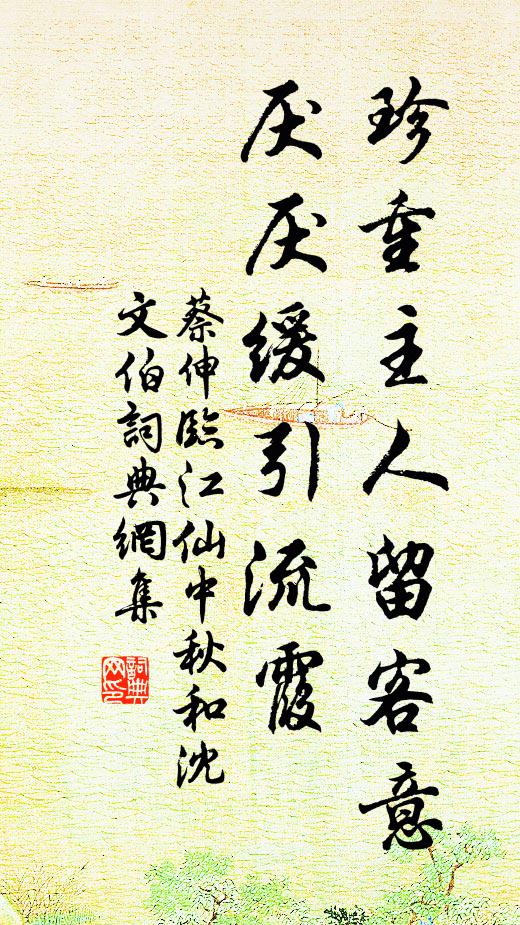 珍重主人留客意
厌厌缓引流霞
蔡伸臨江仙中秋和沈
文伯詞典網集
詞典
网印